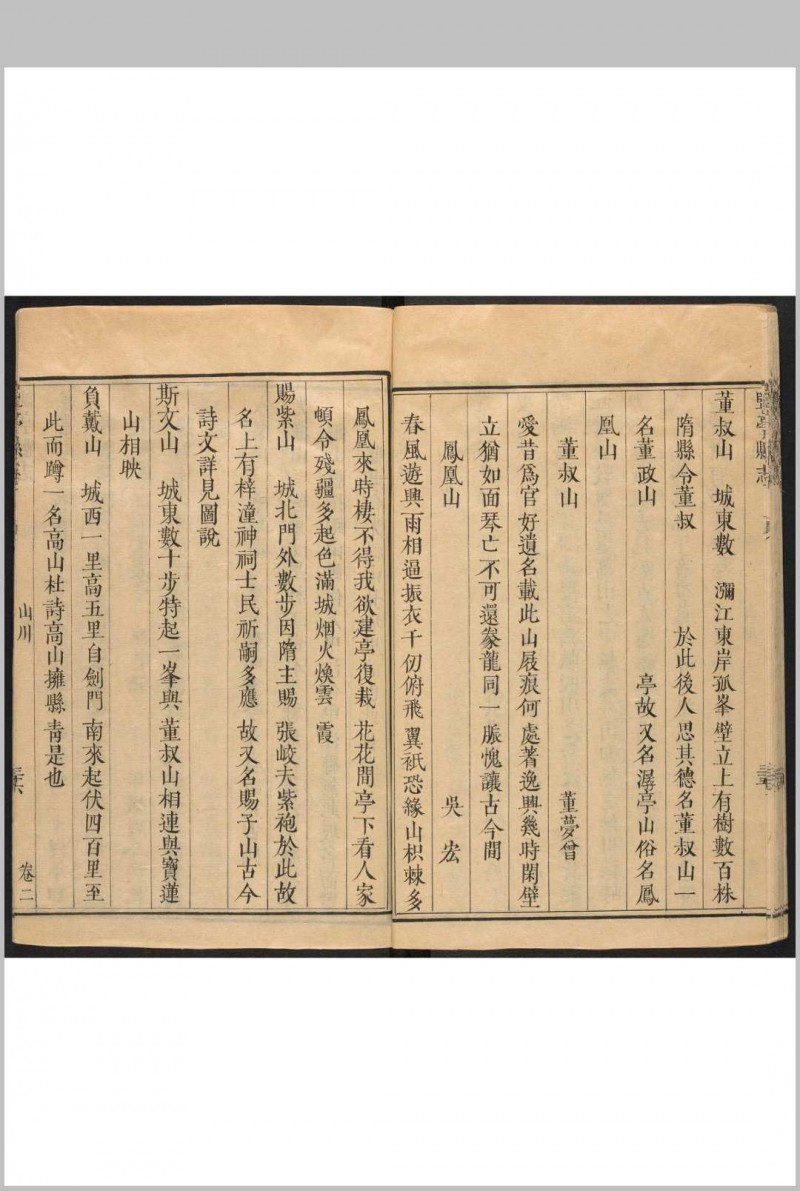 鹽亭縣志
董叔山 城東數 瀰江東岸孤峯壁立上有樹數百株
隋縣令董叔 於此後人思其德名董叔山一
名董政山 亭故又名潺亭山俗名鳳
凰山
董叔山 董夢曾
愛昔爲官好遺名載此山屐痕何處著逸興幾時閑壁
立猶如面琴亡不可還豢龍同一脈愧讓古今間
鳳凰山 吳宏
春風遊興雨相逼振衣千仞俯飛翼祇恐緣山枳棘多
鳳凰來時棲不得我欲建亭復栽花花間亭下看人家
頓令殘疆多起色滿城烟火煥雲霞
賜紫山 城北門外數步因隋主賜張峻夫紫袍於此故
名上有梓潼神祠士民祈嗣多應故又名賜子山古今
詩文詳見圖說
斯文山 城東數十步特起一峯與董叔山相連與寶蓮
山相映
負戴山 城西一里高五里自劍門南來起伏四百里至
此而蹲一名高山杜詩高山擁縣靑是也
山川
卷二